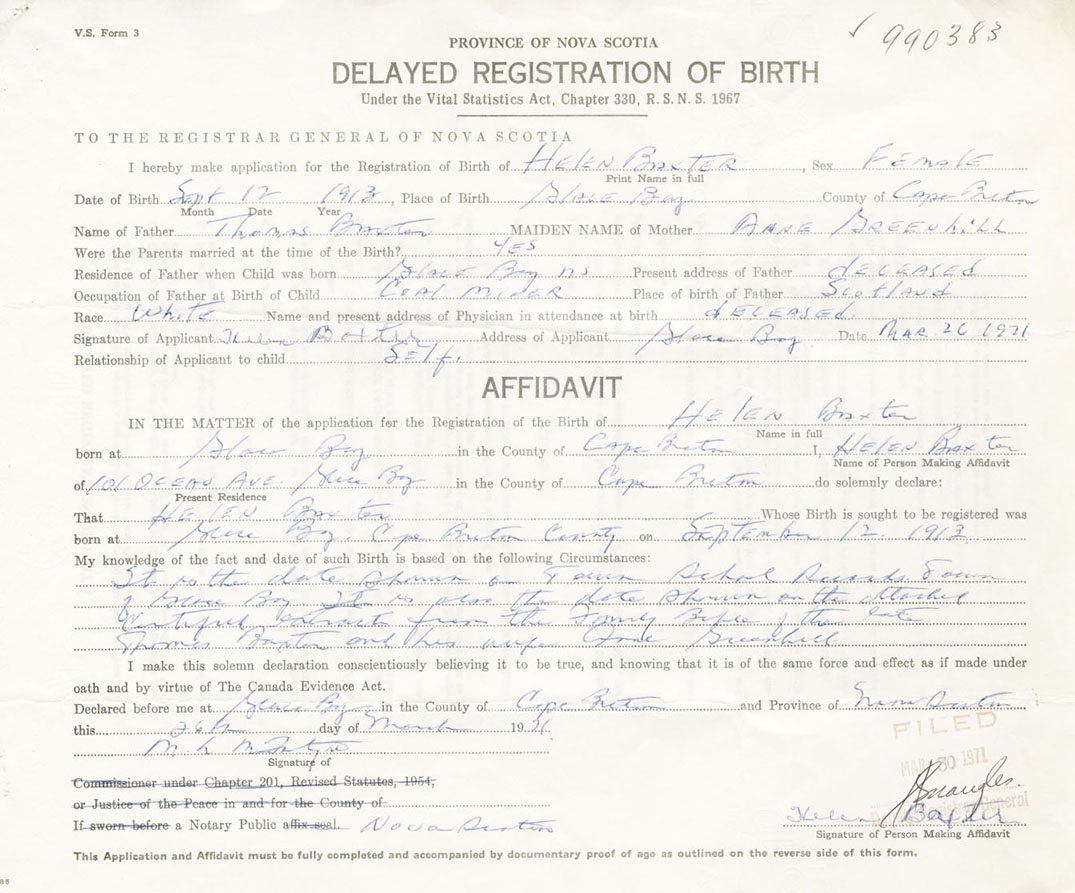 V.S. Form 3
✓ 990383
PROVINCE OF NOVA SCOTIA
DELAYED REGISTRATION OF BIRTH
Under the Vital Statistics Act, Chapter 330, R. S. N. S. 1967
TO THE REGISTRAR GENERAL OF NOVA SCOTIA
I hereby make application for the Registration of Birth of HELEN BAXTER, Sex Female
Print Name in full
Date of Birth Sept 12 1913, Place of Birth Glace Bay County of Cape Breton
Month Date Year
Name of Father Thomas Baxter MAIDEN NAME of Mother ANNE GREENHILL
Were the Parents married at the time of the Birth? YES
Residence of Father when Child was born Glace Bay NS Present address of Father deceased
Occupation of Father at Birth of Child Coal Miner Place of birth of Father Scotland
Race White Name and present address of Physician in attendance at birth deceased.
Signature of Applicant Helen Baxter Address of Applicant Glace Bay Date Mar. 26 1971
Relationship of Applicant to child Self.
AFFIDAVIT
IN THE MATTER of the application for the Registration of the Birth of HELEN Baxter
Name in full
born at Glace Bay in the County of Cape Breton I, HELEN Baxter
Name of Person Making Affidavit
of 101 OCEAN AVE. Glace Bay in the County of Cape Breton do solemnly declare:
Present Residence
That HELEN Baxter Whose Birth is sought to be registered was
born at Glace Bay, Cape Breton County on September 12. 1913
My knowledge of the fact and date of such Birth is based on the following Circumstances:
It is the date shown on Town School Records Town
of Glace Bay It is also the date shown on the attached
extract from the Family Bible of the late
Thomas Baxter and his wife Greenhill
I make this solemn declaration conscientiously believing it to be true, and knowing that it is of the same force and effect as if made under
oath and by virtue of The Canada Evidence Act.
Declared before me at Glace Bay in the County of Cape Breton and Province of Nova Scotia
this 26th day of March 1971
M L McIntyre
Signature of
Commissioner under Chapter 201, Revised Statutes, 1954,
or Justice of the Peace in and for the County of
If sworn before a Notary Public affix seal. Nova Scotia
FILED
MAR 30 1971
Registrar General
Helen Baxter
Signature of Person Making Affidavit
This Application and Affidavit must be fully completed and accompanied by documentary proof of age as outlined on the reverse side of this form.
85